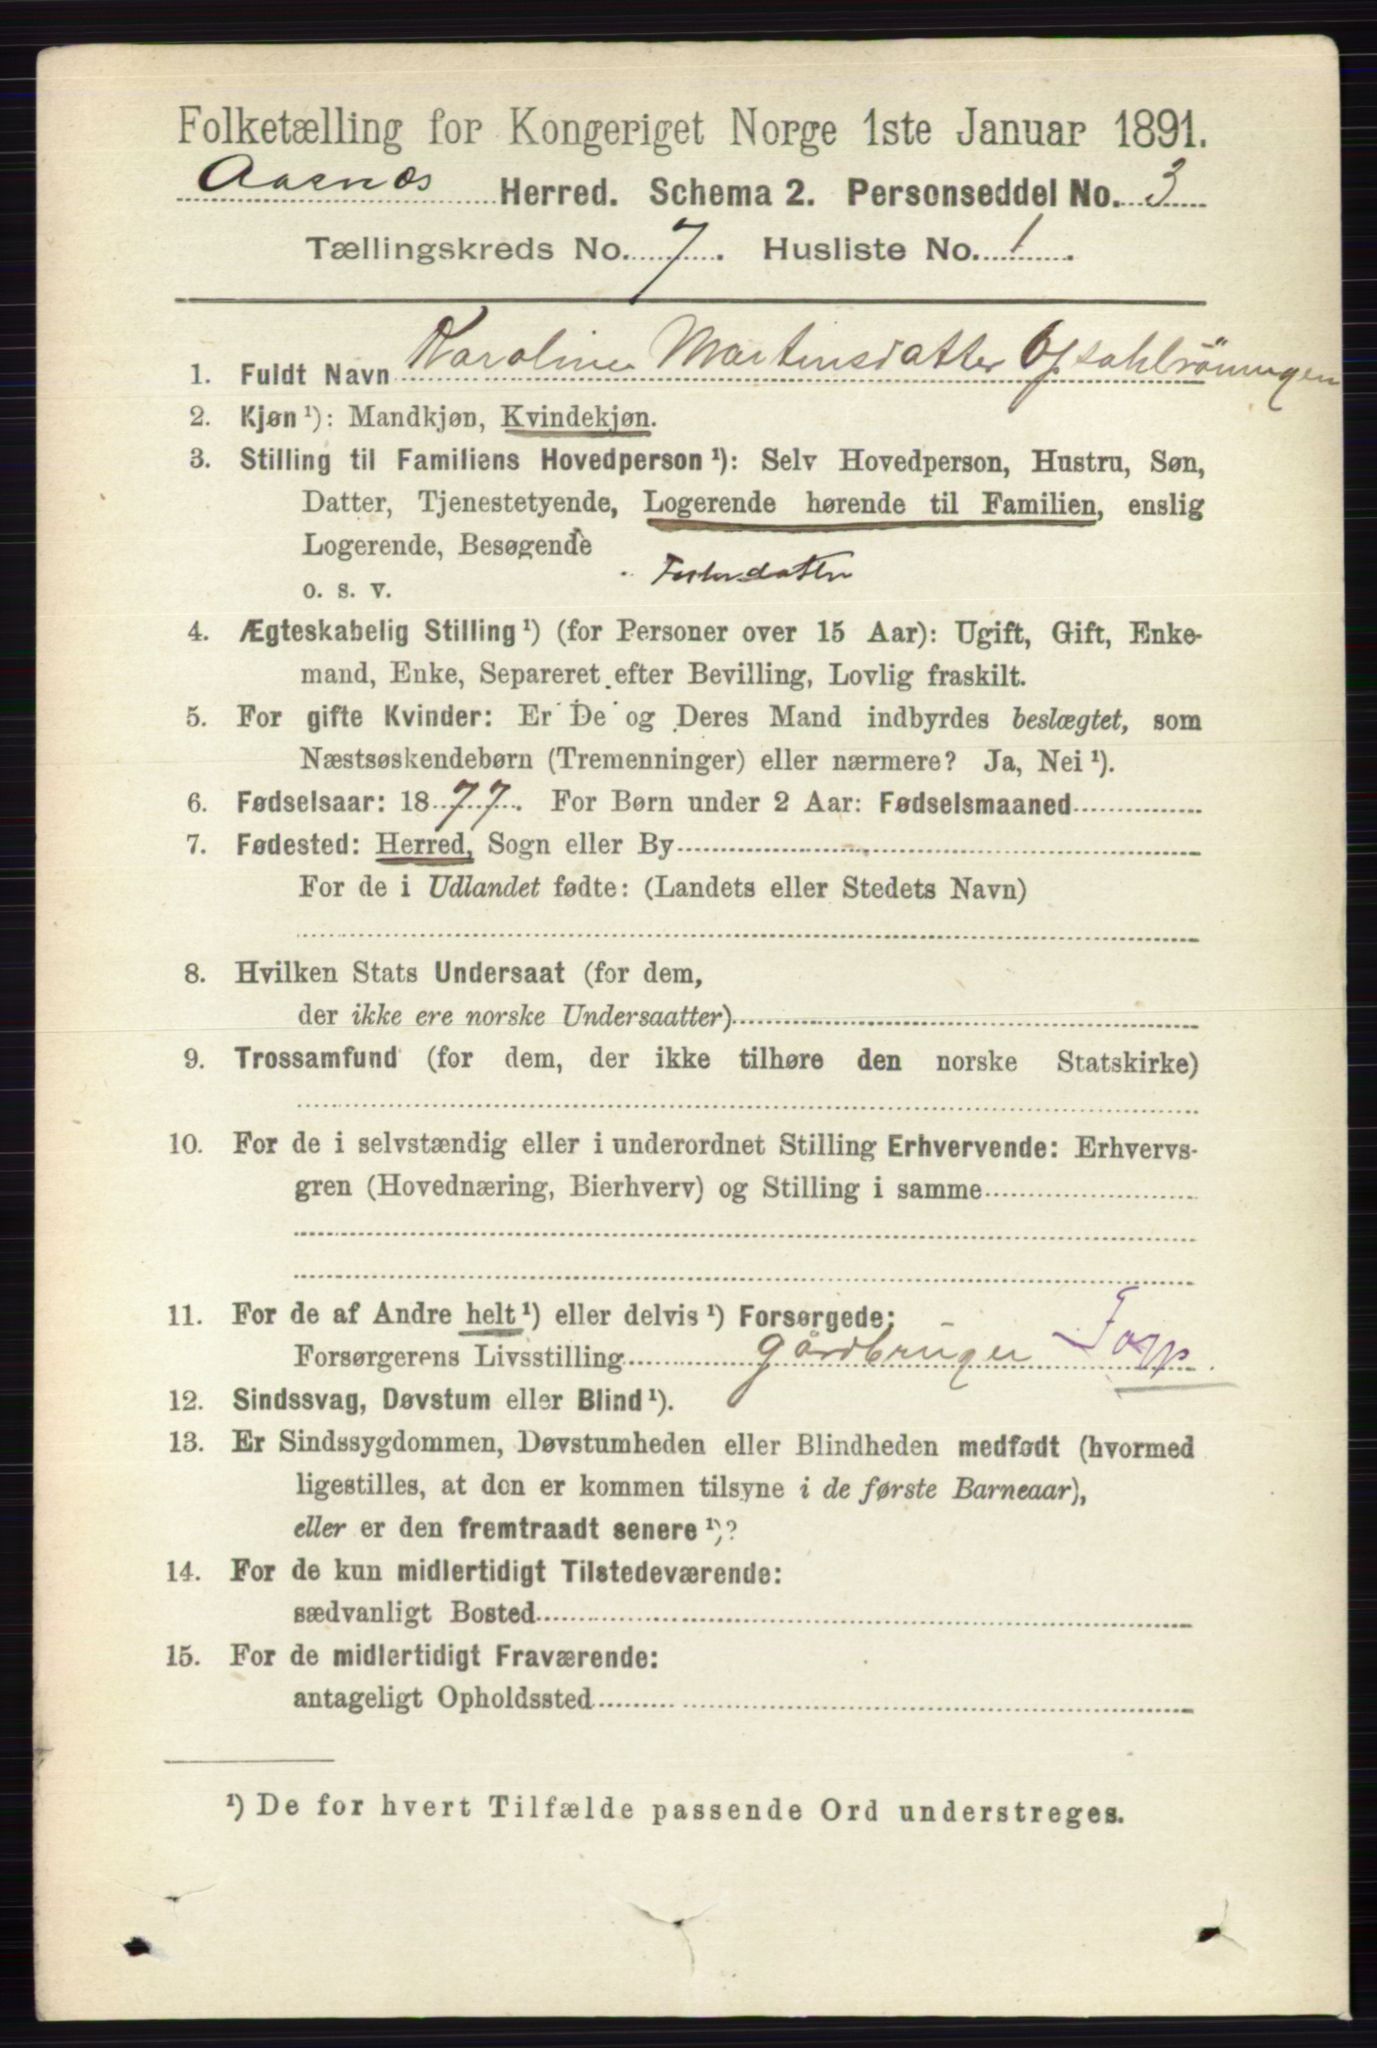 Folketælling for Kongeriget Norge 1ste Januar 1891.
Aasnæs Herred. Schema 2. Personseddel No. 3
Tællingskreds No. 7. Husliste No. 1.
1. Fuldt Navn Karoline Martinsdatter Opsahlröningen
2. Kjøn ¹): Mandkjøn, Kvindekjøn.
3. Stilling til Familiens Hovedperson ¹): Selv Hovedperson, Hustru, Søn,
Datter, Tjenestetyende, Logerende hørende til Familien, enslig
Logerende, Besøgende
o. s. v. Fosterdatter
4. Ægteskabelig Stilling ¹) (for Personer over 15 Aar): Ugift, Gift, Enke-
mand, Enke, Separeret efter Bevilling, Lovlig fraskilt.
5. For gifte Kvinder: Er De og Deres Mand indbyrdes beslægtet, som
Næstsøskendebørn (Tremenninger) eller nærmere? Ja, Nei ¹).
6. Fødselsaar: 1877. For Børn under 2 Aar: Fødselsmaaned
7. Fødested: Herred, Sogn eller By
For de i Udlandet fødte: (Landets eller Stedets Navn)
8. Hvilken Stats Undersaat (for dem,
der ikke ere norske Undersaatter)
9. Trossamfund (for dem, der ikke tilhøre den norske Statskirke)
10. For de i selvstændig eller i underordnet Stilling Erhvervende: Erhvervs-
gren (Hovednæring, Bierhverv) og Stilling i samme
11. For de af Andre helt ¹) eller delvis ¹) Forsørgede:
Forsørgerens Livsstilling gårdbruger
12. Sindssvag, Døvstum eller Blind ¹).
13. Er Sindssygdommen, Døvstumheden eller Blindheden medfødt (hvormed
ligestilles, at den er kommen tilsyne i de første Barneaar),
eller er den fremtraadt senere ¹)?
14. For de kun midlertidigt Tilstedeværende:
sædvanligt Bosted
15. For de midlertidigt Fraværende:
antageligt Opholdssted
¹) De for hvert Tilfælde passende Ord understreges.